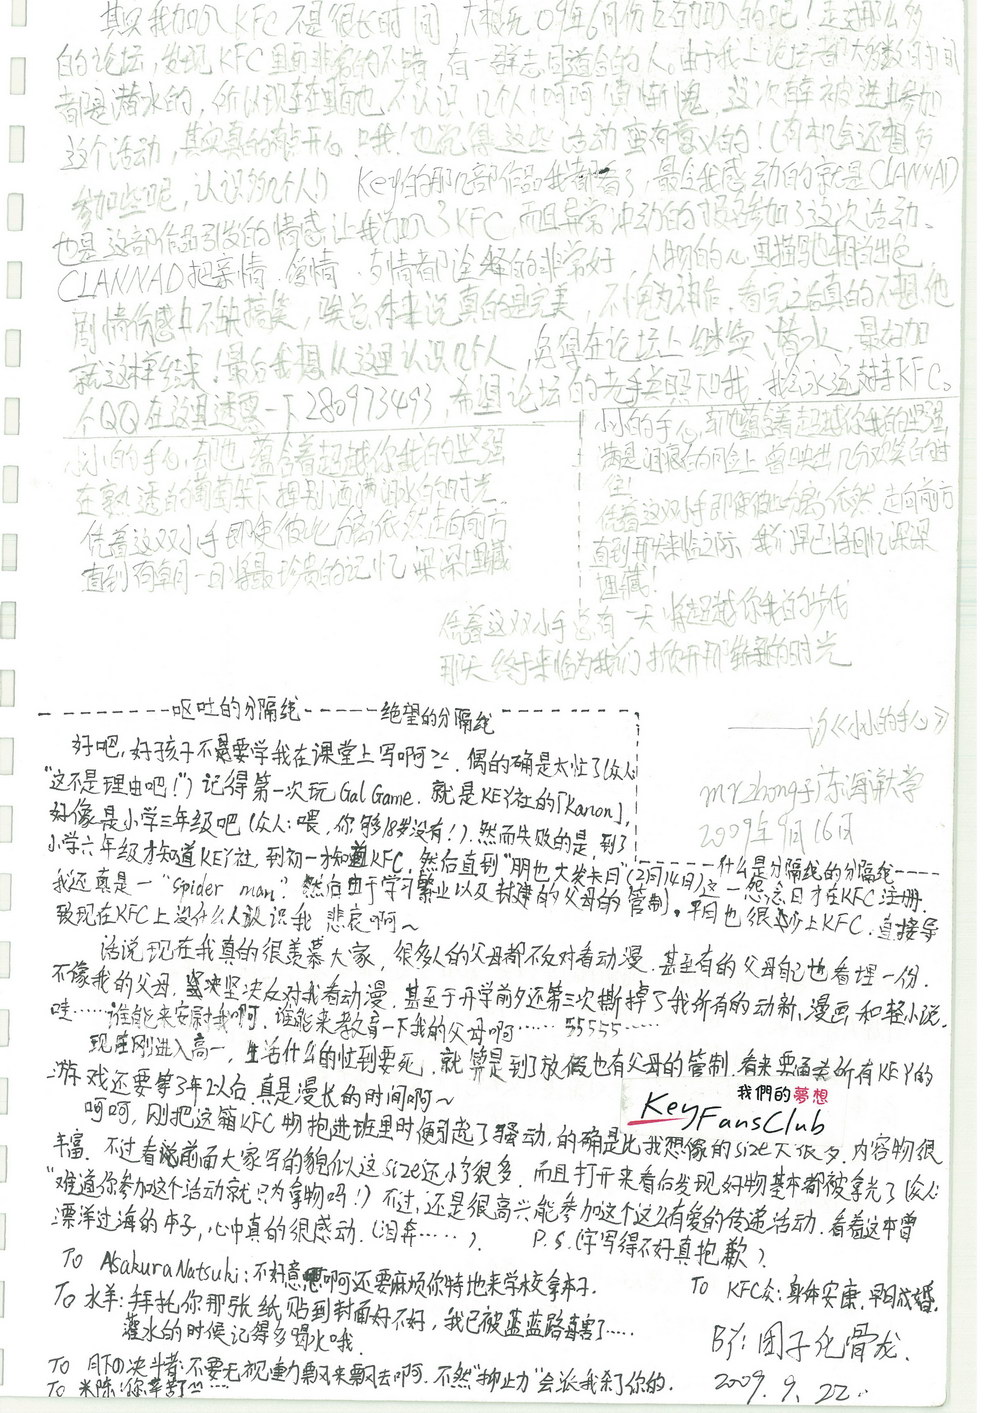 其实我加入KFC不是很长时间，大概是09年6月份左右加入的吧！走过那么多
的论坛，发现KFC里面非常的不错，有一群志同道合的人。由于我上论坛都大多数的时间
都是潜水的，所以现至里面也不认识几个人！呵呵真惭愧，这次有幸被选中参加
这个活动，其实真的有点开心哦！也觉得这些活动蛮有意义的！(有机会还想多
参加些呢，认识多几个人) Key的那几部作品我都看了，最令我感动的就是CLANNAD
也是这部作品引发的情感让我加入了KFC，而且异常冲动的报名参加了这次活动。
CLANNAD把亲情、爱情、友情都诠释的非常好，人物的心里描写也相当出色
剧情伤感中不缺搞笑，唉总体来说真的是完美，不愧为神作，看完之后真的不想他
就这样结束！最后我想从这里认识几个人，免得在论坛上继续潜水，最好加
个QQ在这里透露一下280973493，希望论坛的老手关照下我，我会永远支持KFC。
小小的手心，却也蕴含着超越你我的坚强
在熟透的葡萄架下挥别洒满泪水的时光
凭着这双小手即使彼此分离依然走向前方
直到有朝一日将最珍贵的记忆深深埋藏
小小的手心，却也蕴含着超越你我的坚强
满是泪痕的面容上曾映出几分欢笑的时
位！
凭着这双小手即使彼此分离依然走向前方
直到那天来临之际，我们早已将回忆深深
埋藏！
凭着这双小手总有一天将超越你我的步伐
那天终于来临为我们打开那崭新的时光
——《小小的手心》
mrzhong于广东海洋大学
2009年9月16日
--------呕吐的分隔线-----绝望的分隔线------
好吧，好孩子不要学我在课堂上写啊>_<，偶的确是太忙了(众人：
“这不是理由吧！”) 记得第一次玩Gal Game，就是KEY社的「Kanon」，
好像是小学三年级吧(众人：喂，你够18岁没有！)，然而失败的是，到了
小学六年级才知道KEY社，到初一才知道KFC，然后直到“朋也大婚末日”(2月14日)这一怨念日才在KFC注册，
-----什么是分隔线的分隔线----
我还真是一“spider man”？然后由于学习繁业以及封建的父母的管制，平日也很少上KFC，直接导
致现在KFC上没什么人认识我 悲哀啊～
话说现在我真的很羡慕大家，很多人的父母都不反对看动漫，甚至有的父母自己也看埋一份，
不像我的父母，坚决坚决反对我看动漫，甚至于开学前夕还第三次撕掉了我所有的动新，漫画和轻小说，
哇……谁能来安慰我啊，谁能来教育一下我的父母啊……55555……
现在刚进入高一，生活什么的忙到要死，就算是到了放假也有父母的管制，看来要通关所有KEY的
游戏还要等3年以后，真是漫长的时间啊～
我們的夢想
KeyFansClub
呵呵，刚把这箱KFC物抱进班里时便引起了骚动，的确是比我想像的size大很多，内容物很
丰富，不过看前面大家写的貌似这size还小了很多，而且打开来看后发现好物基本都被拿光了(众人：
“难道你参加这个活动就只为拿物吗！) 不过，还是很高兴能参加这个这么有爱的传递活动，看着这本曾
漂洋过海的本子，心中真的很感动(泪奔……)。 P.S.(字写得不好真抱歉)
To AsakuraNatsuki：不好意思啊还要麻烦你特地来学校拿本子．
To KFC众：身体安康，早日成婚．
To 水羊：拜托你那张纸贴到封面好不好，我已被蓝蓝路毒害了……
灌水的时候记得多喝水哦．
BY：团子化骨龙．
To 月下の决斗者：不要无视重力飘来飘去啊，不然“抑止力”会派我杀了你的．
To 米陈：你辛苦了……
2009. 9. 22..